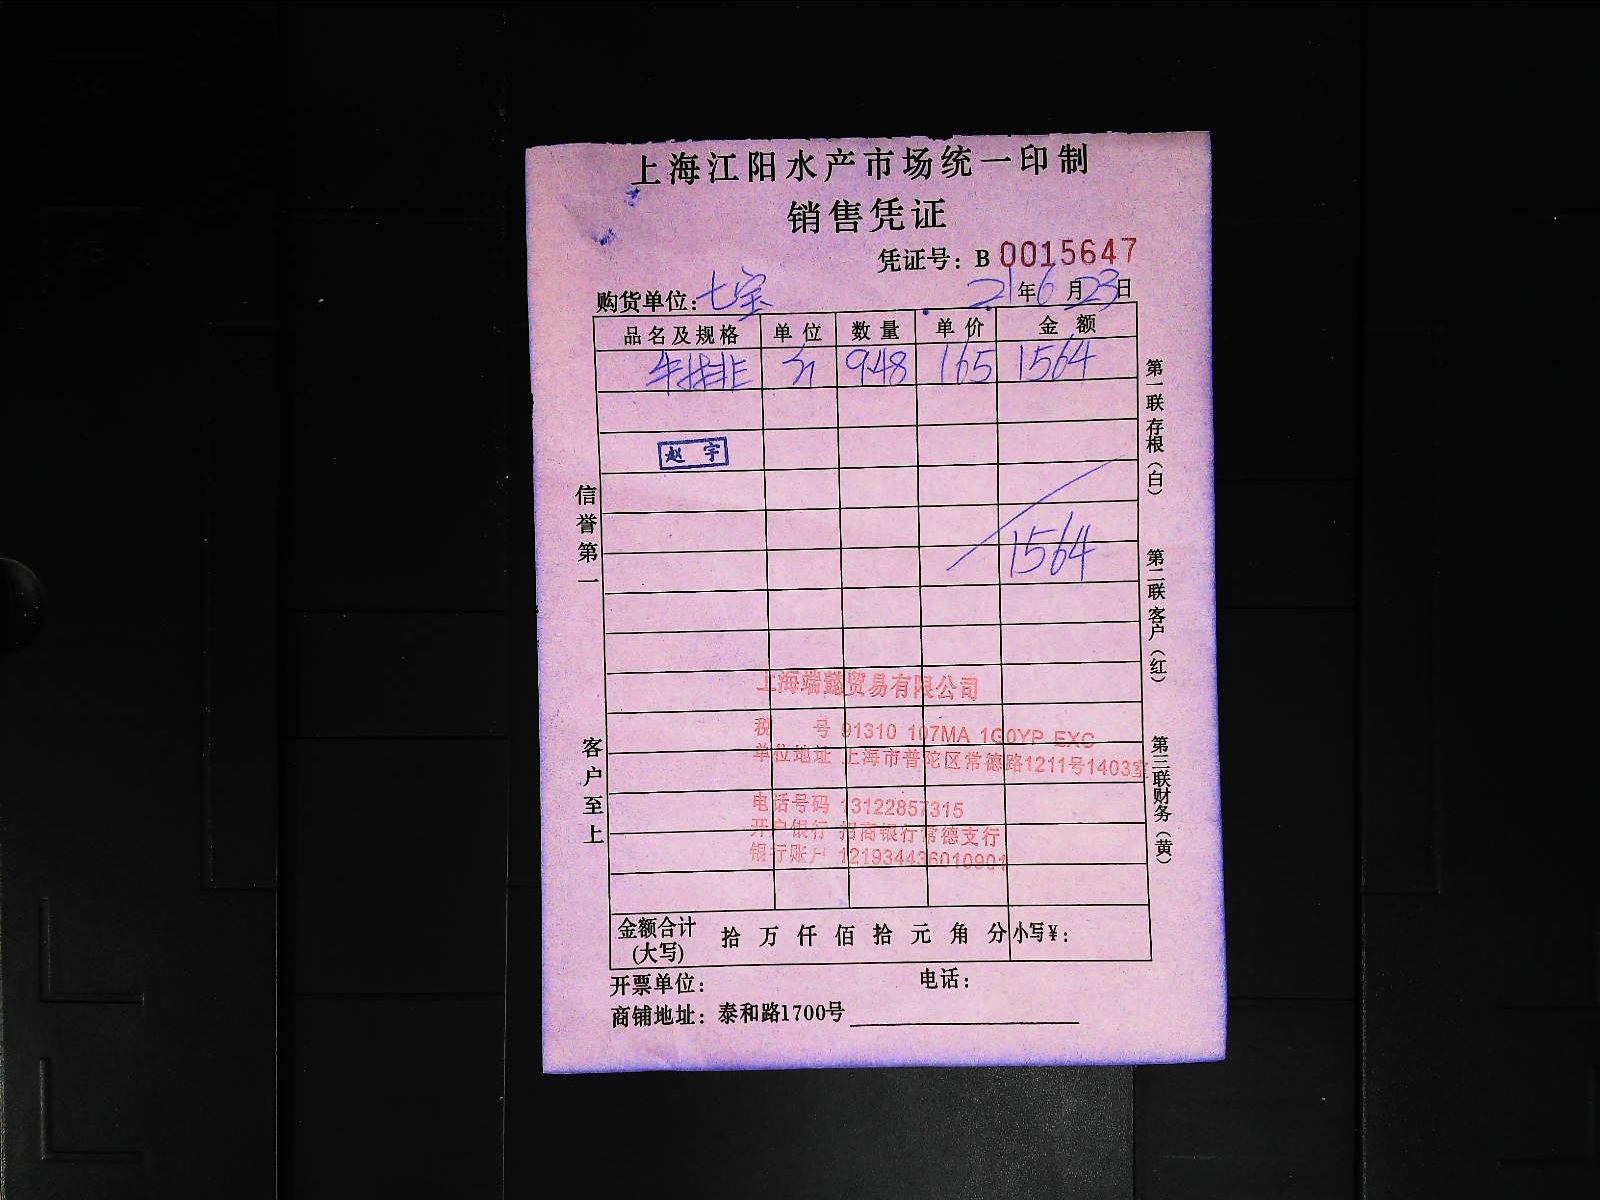 上海江阳水产市场统一印制
销售凭证
凭证号：B 0015647
购货单位：七宝 21年6月23日
品名及规格 单位 数量 单价 金额
牛排 斤 9.48 165 1564
赵宇
1564
上海端懿贸易有限公司
税 号 91310 107MA 1G0YP EXC
单位地址 上海市普陀区常德路1211号1403室
电话号码 13122857315
开户银行 招商银行常德支行
银行账户 121934436010901
金额合计(大写) 拾 万 仟 佰 拾 元 角 分 小写¥：
开票单位： 电话：
商铺地址：泰和路1700号
信誉第一 客户至上
第一联存根（白） 第二联客户（红） 第三联财务（黄）